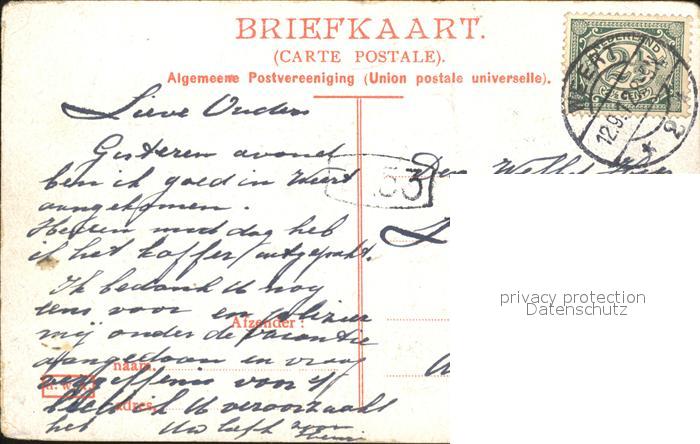 BRIEFKAART.
(CARTE POSTALE).
Algemeene Postvereeniging (Union postale universelle).
NEDERLAND
2½
CENT
WEERT
12.9.
Lieve Ouders
Gisteren avond
ben ik goed in Weert
aangekomen.
Heden mid dag heb
ik het koffer uitgepakt.
Ik bedank U nog
eens voor en plezier
mij onder de vacantie
aangedaan en vraag
vergeffenis voor
U veroorzaakt
het Uw liefh zoon
Den Weled Heer
Afzender:
naam.
adres.
privacy protection
Datenschutz